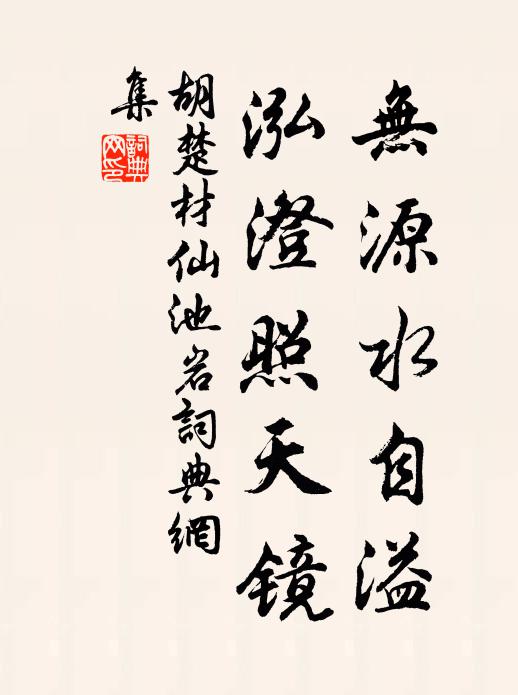 無源水自溢
泓澄照天镜
胡楚材仙池岩詞典網
集
詞典
网印